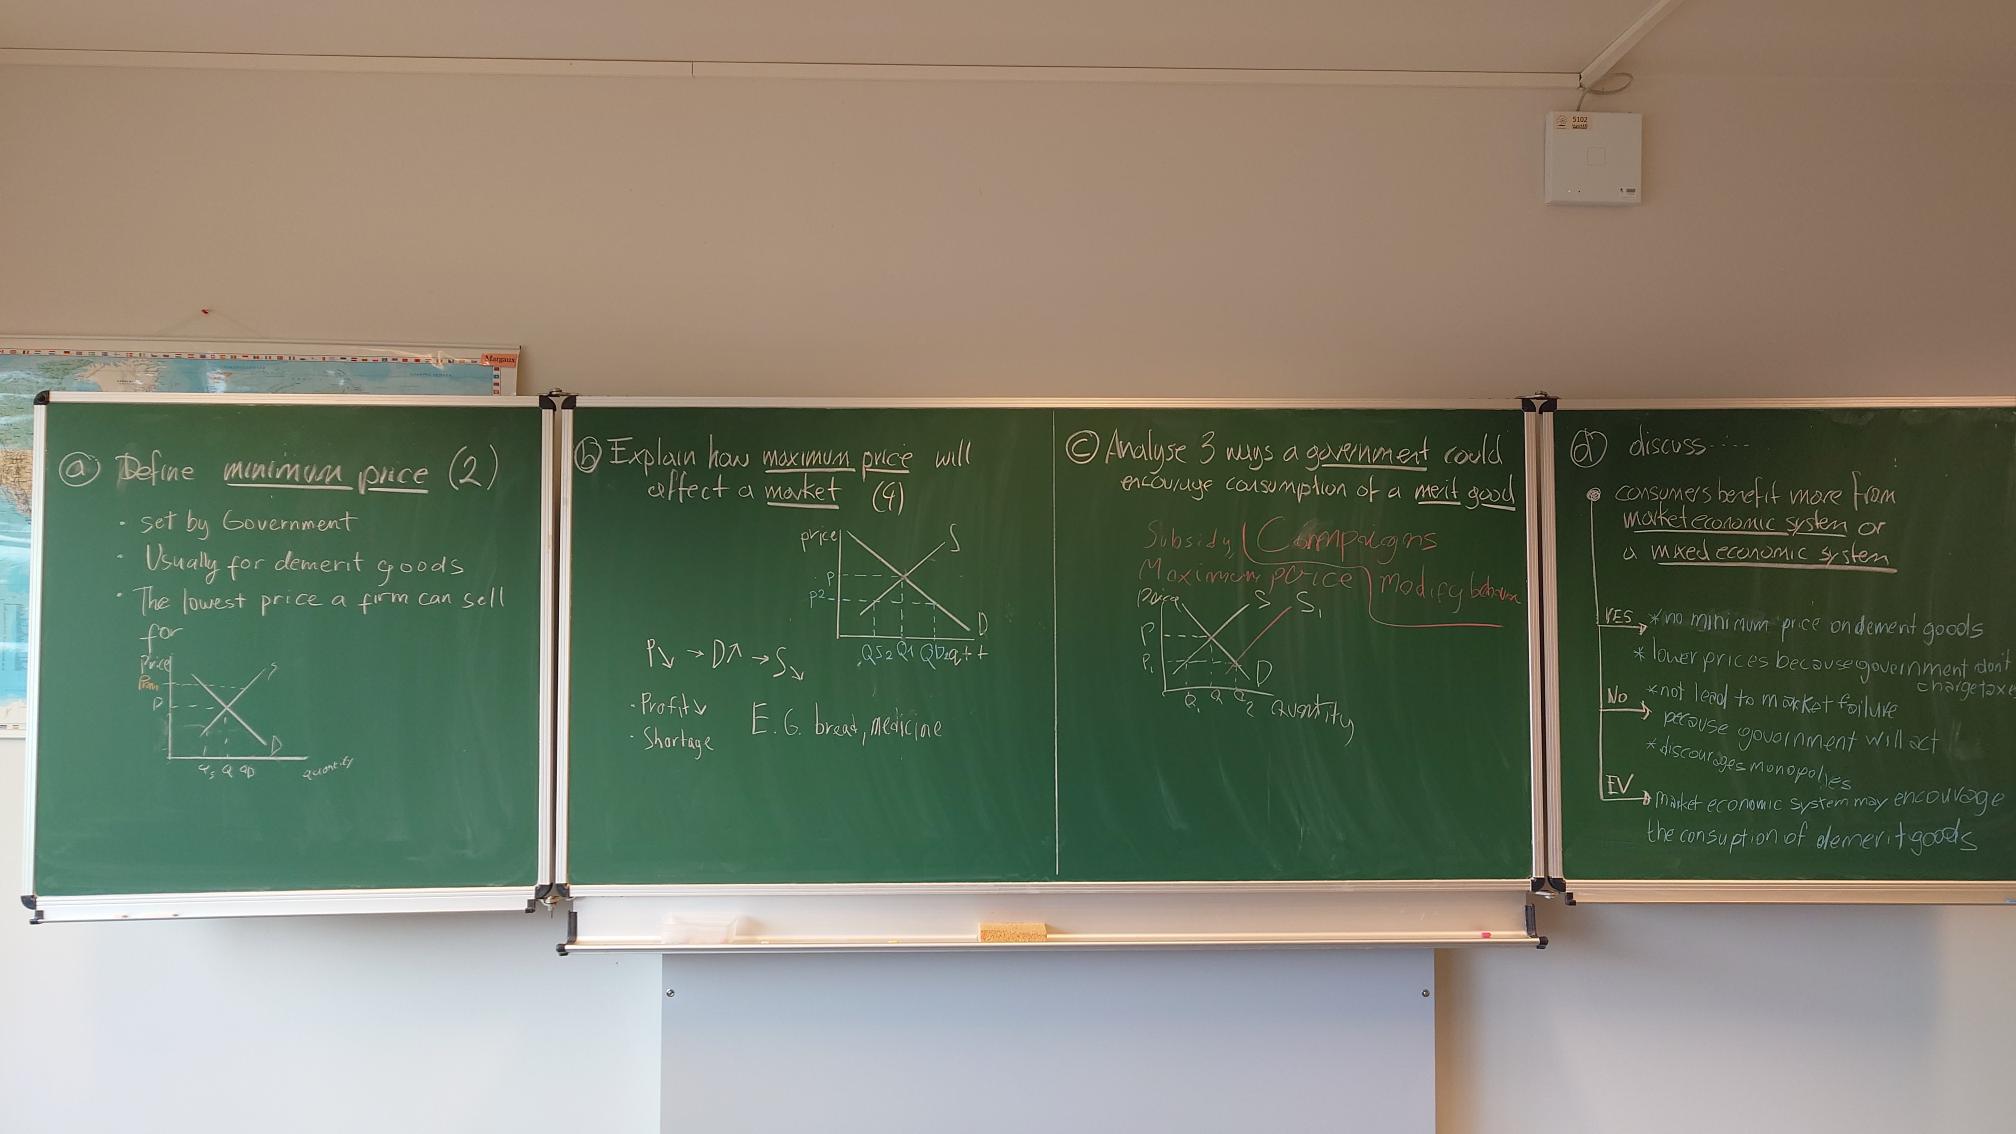 5102
Margaux
ⓐ Define minimum price (2)
· set by Government
· Usually for demerit goods
· The lowest price a firm can sell
for
Price
Pmin
P
S
D
Qs Q QD
quantity
ⓑ Explain how maximum price will
affect a market (4)
price
S
P
P2
D
QS2 Q1 QD2 qtt
P↘ → D↗ → S↘
· Profit↘
· Shortage
E.G. bread, medicine
ⓒ Analyse 3 ways a government could
encourage consumption of a merit good
Subsidy Campaigns
Maximum price modify behaviour
Price
S S₁
P
P₁
D
Q₁ Q Q₂
Quantity
ⓓ discuss.....
consumers benefit more from
market economic system or
a mixed economic system
YES → *no minimum price on demerit goods
*lower prices because government don't
charge taxes
No → *not lead to market failure
because government will act
*discourages monopolies
EV → market economic system may encourage
the consuption of demerit goods